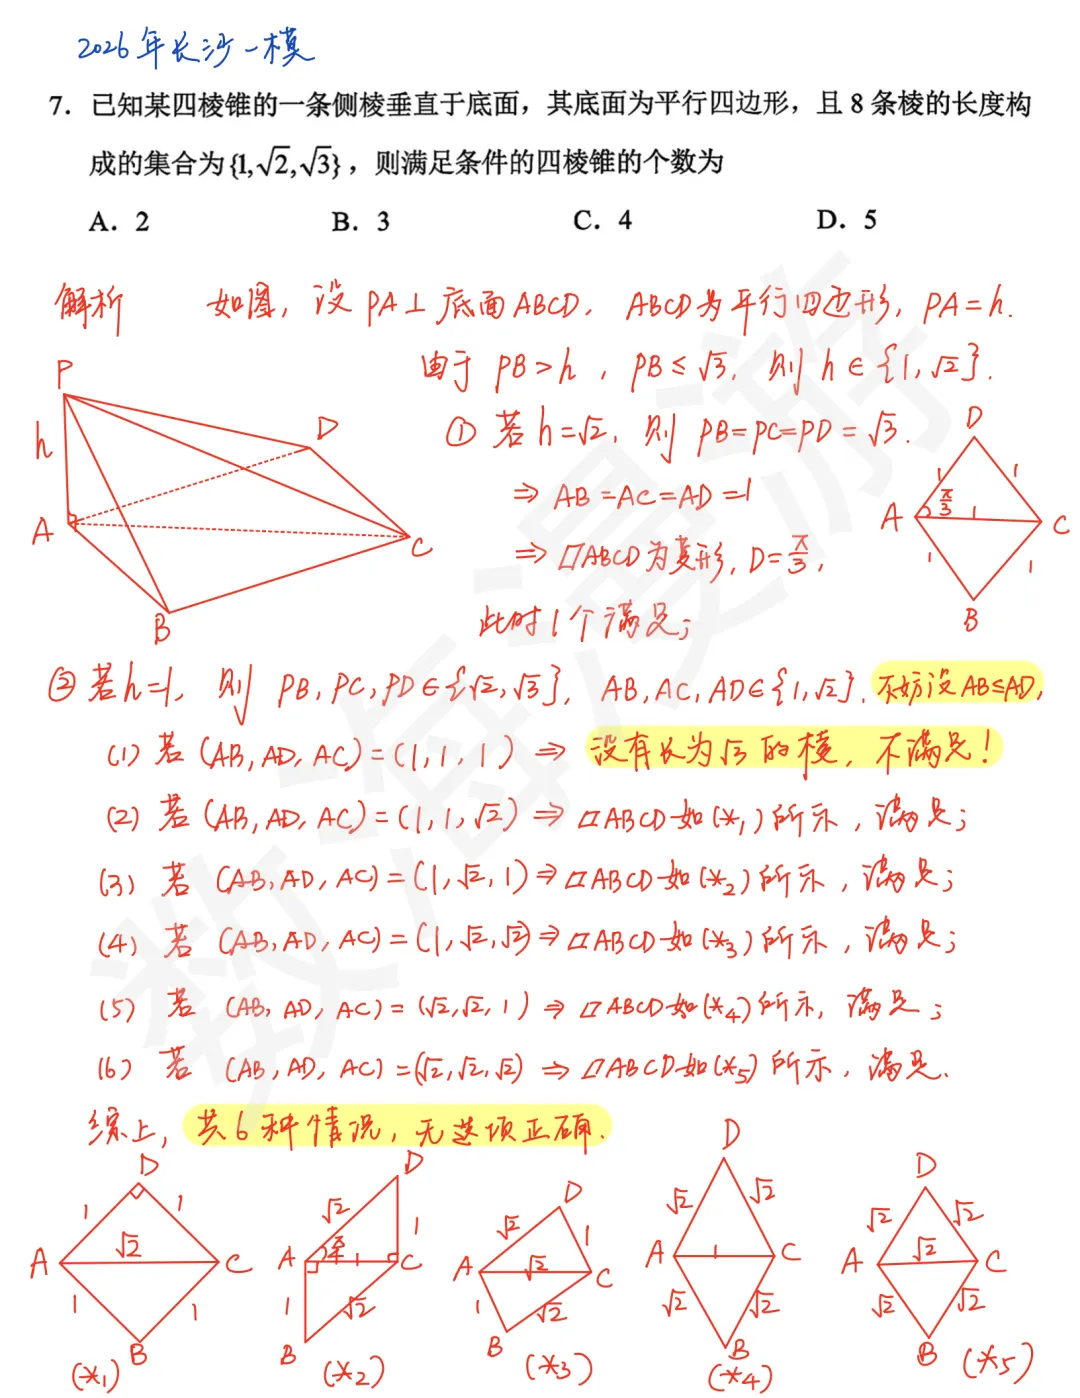 2026年长沙一模
7. 已知某四棱锥的一条侧棱垂直于底面，其底面为平行四边形，且 8 条棱的长度构
成的集合为{1,√2,√3}，则满足条件的四棱锥的个数为
A. 2 B. 3 C. 4 D. 5
解析 如图，设 PA⊥底面ABCD，ABCD为平行四边形，PA=h.
由于 PB>h，PB≤√3，则 h∈{1,√2}.
① 若h=√2，则 PB=PC=PD=√3.
⇒ AB=AC=AD=1
⇒ ▱ABCD为菱形，D=π/3，
此时1个满足；
P
h
D
A
C
B
D
1 1
A π/3 1 C
1 1
B
② 若h=1，则 PB,PC,PD∈{√2,√3}，AB,AC,AD∈{1,√2}. 不妨设AB≤AD，
(1) 若 (AB,AD,AC)=(1,1,1) ⇒ 没有长为√3的棱，不满足！
(2) 若 (AB,AD,AC)=(1,1,√2) ⇒ ▱ABCD如(*1)所示，满足；
(3) 若 (AB,AD,AC)=(1,√2,1) ⇒ ▱ABCD如(*2)所示，满足；
(4) 若 (AB,AD,AC)=(1,√2,√2) ⇒ ▱ABCD如(*3)所示，满足；
(5) 若 (AB,AD,AC)=(√2,√2,1) ⇒ ▱ABCD如(*4)所示，满足；
(6) 若 (AB,AD,AC)=(√2,√2,√2) ⇒ ▱ABCD如(*5)所示，满足.
综上，共6种情况，无选项正确.
D
1 1
A √2 C
1 1
B
(*1)
D
√2 1
A π/4 1 C
1 √2
B
(*2)
D
√2 1
A √2 C
1 √2
B
(*3)
D
√2 √2
A 1 C
√2 √2
B
(*4)
D
√2 √2
A √2 C
√2 √2
B
(*5)
数海漫游